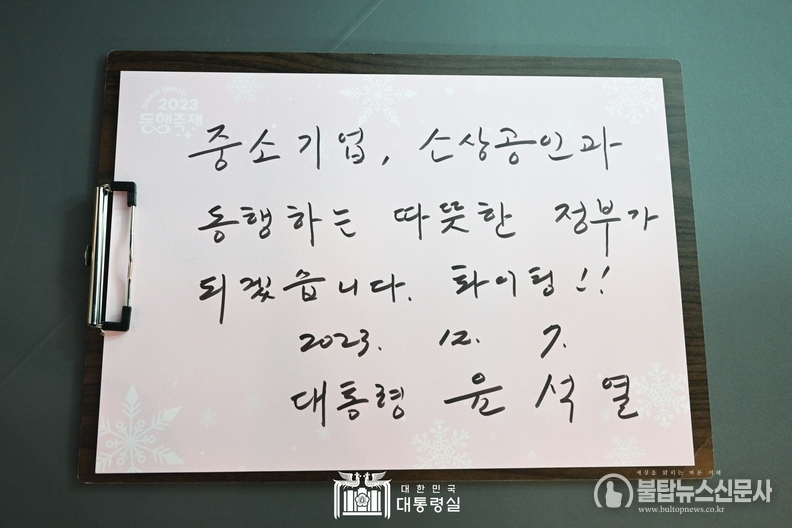 2023
동행축제
중소기업, 소상공인과
동행하는 따뜻한 정부가
되겠습니다. 화이팅!!
2023. 12. 7.
대통령 윤석열
대한민국
대통령실
세상을 밝히는 바른 지혜
불탑뉴스신문사
www.bultopnews.co.kr